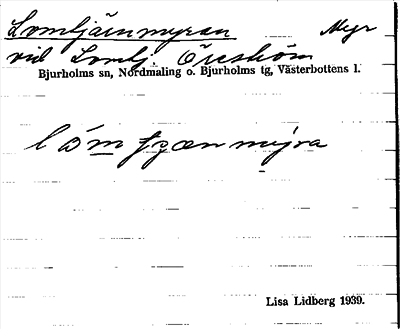 Lomtjärnmyran Myr
vid Lomtj. Öreström
Bjurholms sn, Nordmaling o. Bjurholms tg, Västerbottens l.
lòmtjæ̣nmyra
Lisa Lidberg 1939.